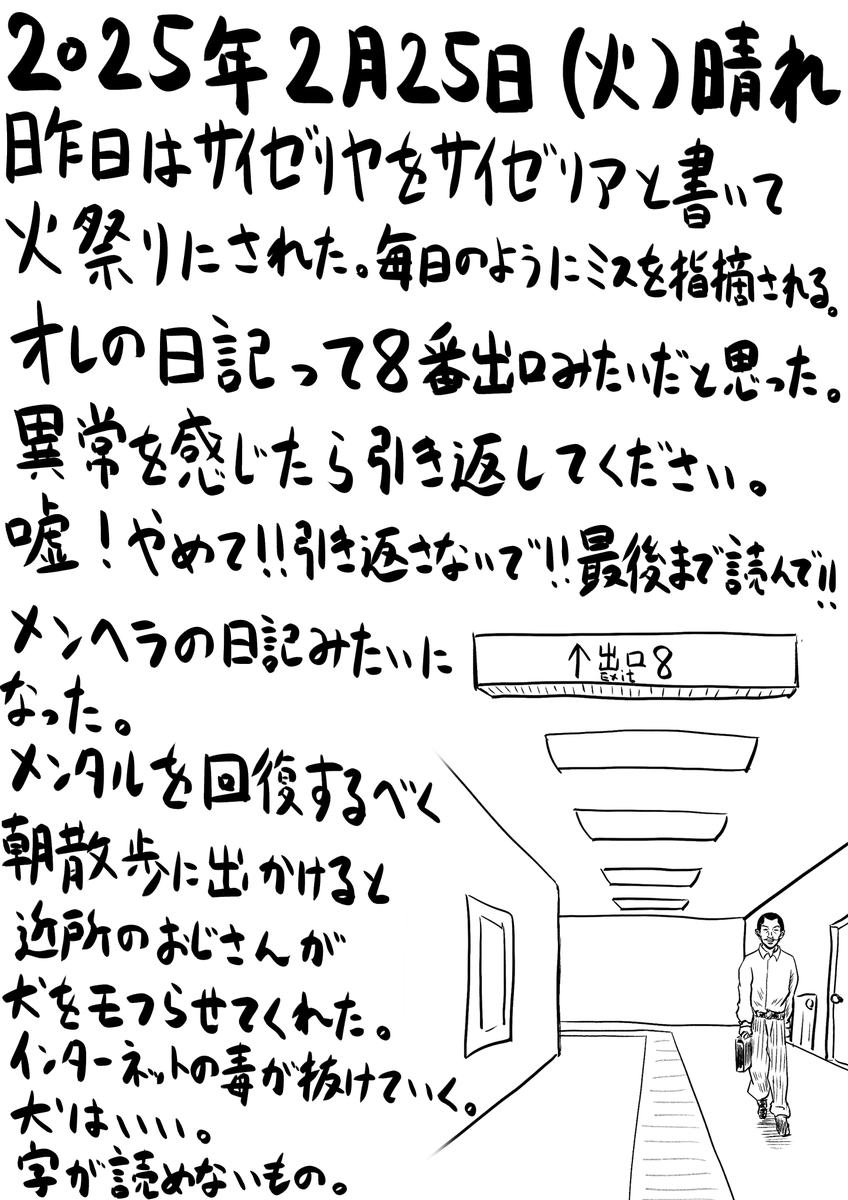 2025年2月25日(火)晴れ
昨日はサイゼリヤをサイゼリアと書いて
火祭りにされた。毎日のようにミスを指摘される。
オレの日記って8番出口みたいだと思った。
異常を感じたら引き返してください。
嘘!やめて!!引き返さないで!!最後まで読んで!!
メンヘラの日記みたいに
なった。
メンタルを回復するべく
朝散歩に出かけると
近所のおじさんが
犬をモフらせてくれた。
インターネットの毒が抜けていく。
犬はいいい。
字が読めないもの。
↑出口8
Exit